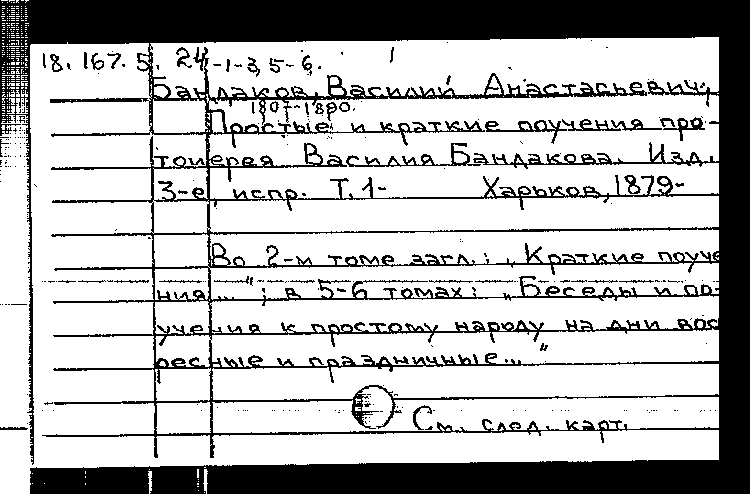 18. 167. 5. 24-1-3, 5-6.
Бандаков, Василий Анастасьевич,
1807-1890.
Простые и краткие поучения про-
тоиерея Василия Бандакова. Изд.
3-е, испр. Т. 1- Харьков, 1879-
Во 2-м томе загл.: „Краткие поуче
ния..."; в 5-6 томах: „Беседы и по-
учения к простому народу на дни вос
ресные и праздничные..."
См. след. карт.